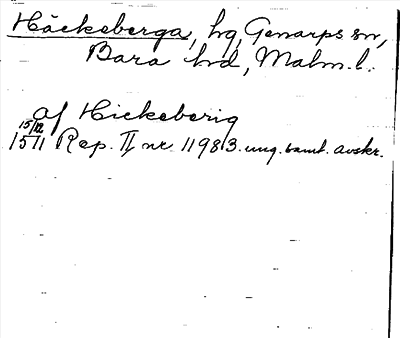 Häckeberga, hg, Genarps sn,
Bara hd, Malm. l.
af Hickeberig
15/12
1511 Rep. II nr. 11983. ung. samt. avskr.